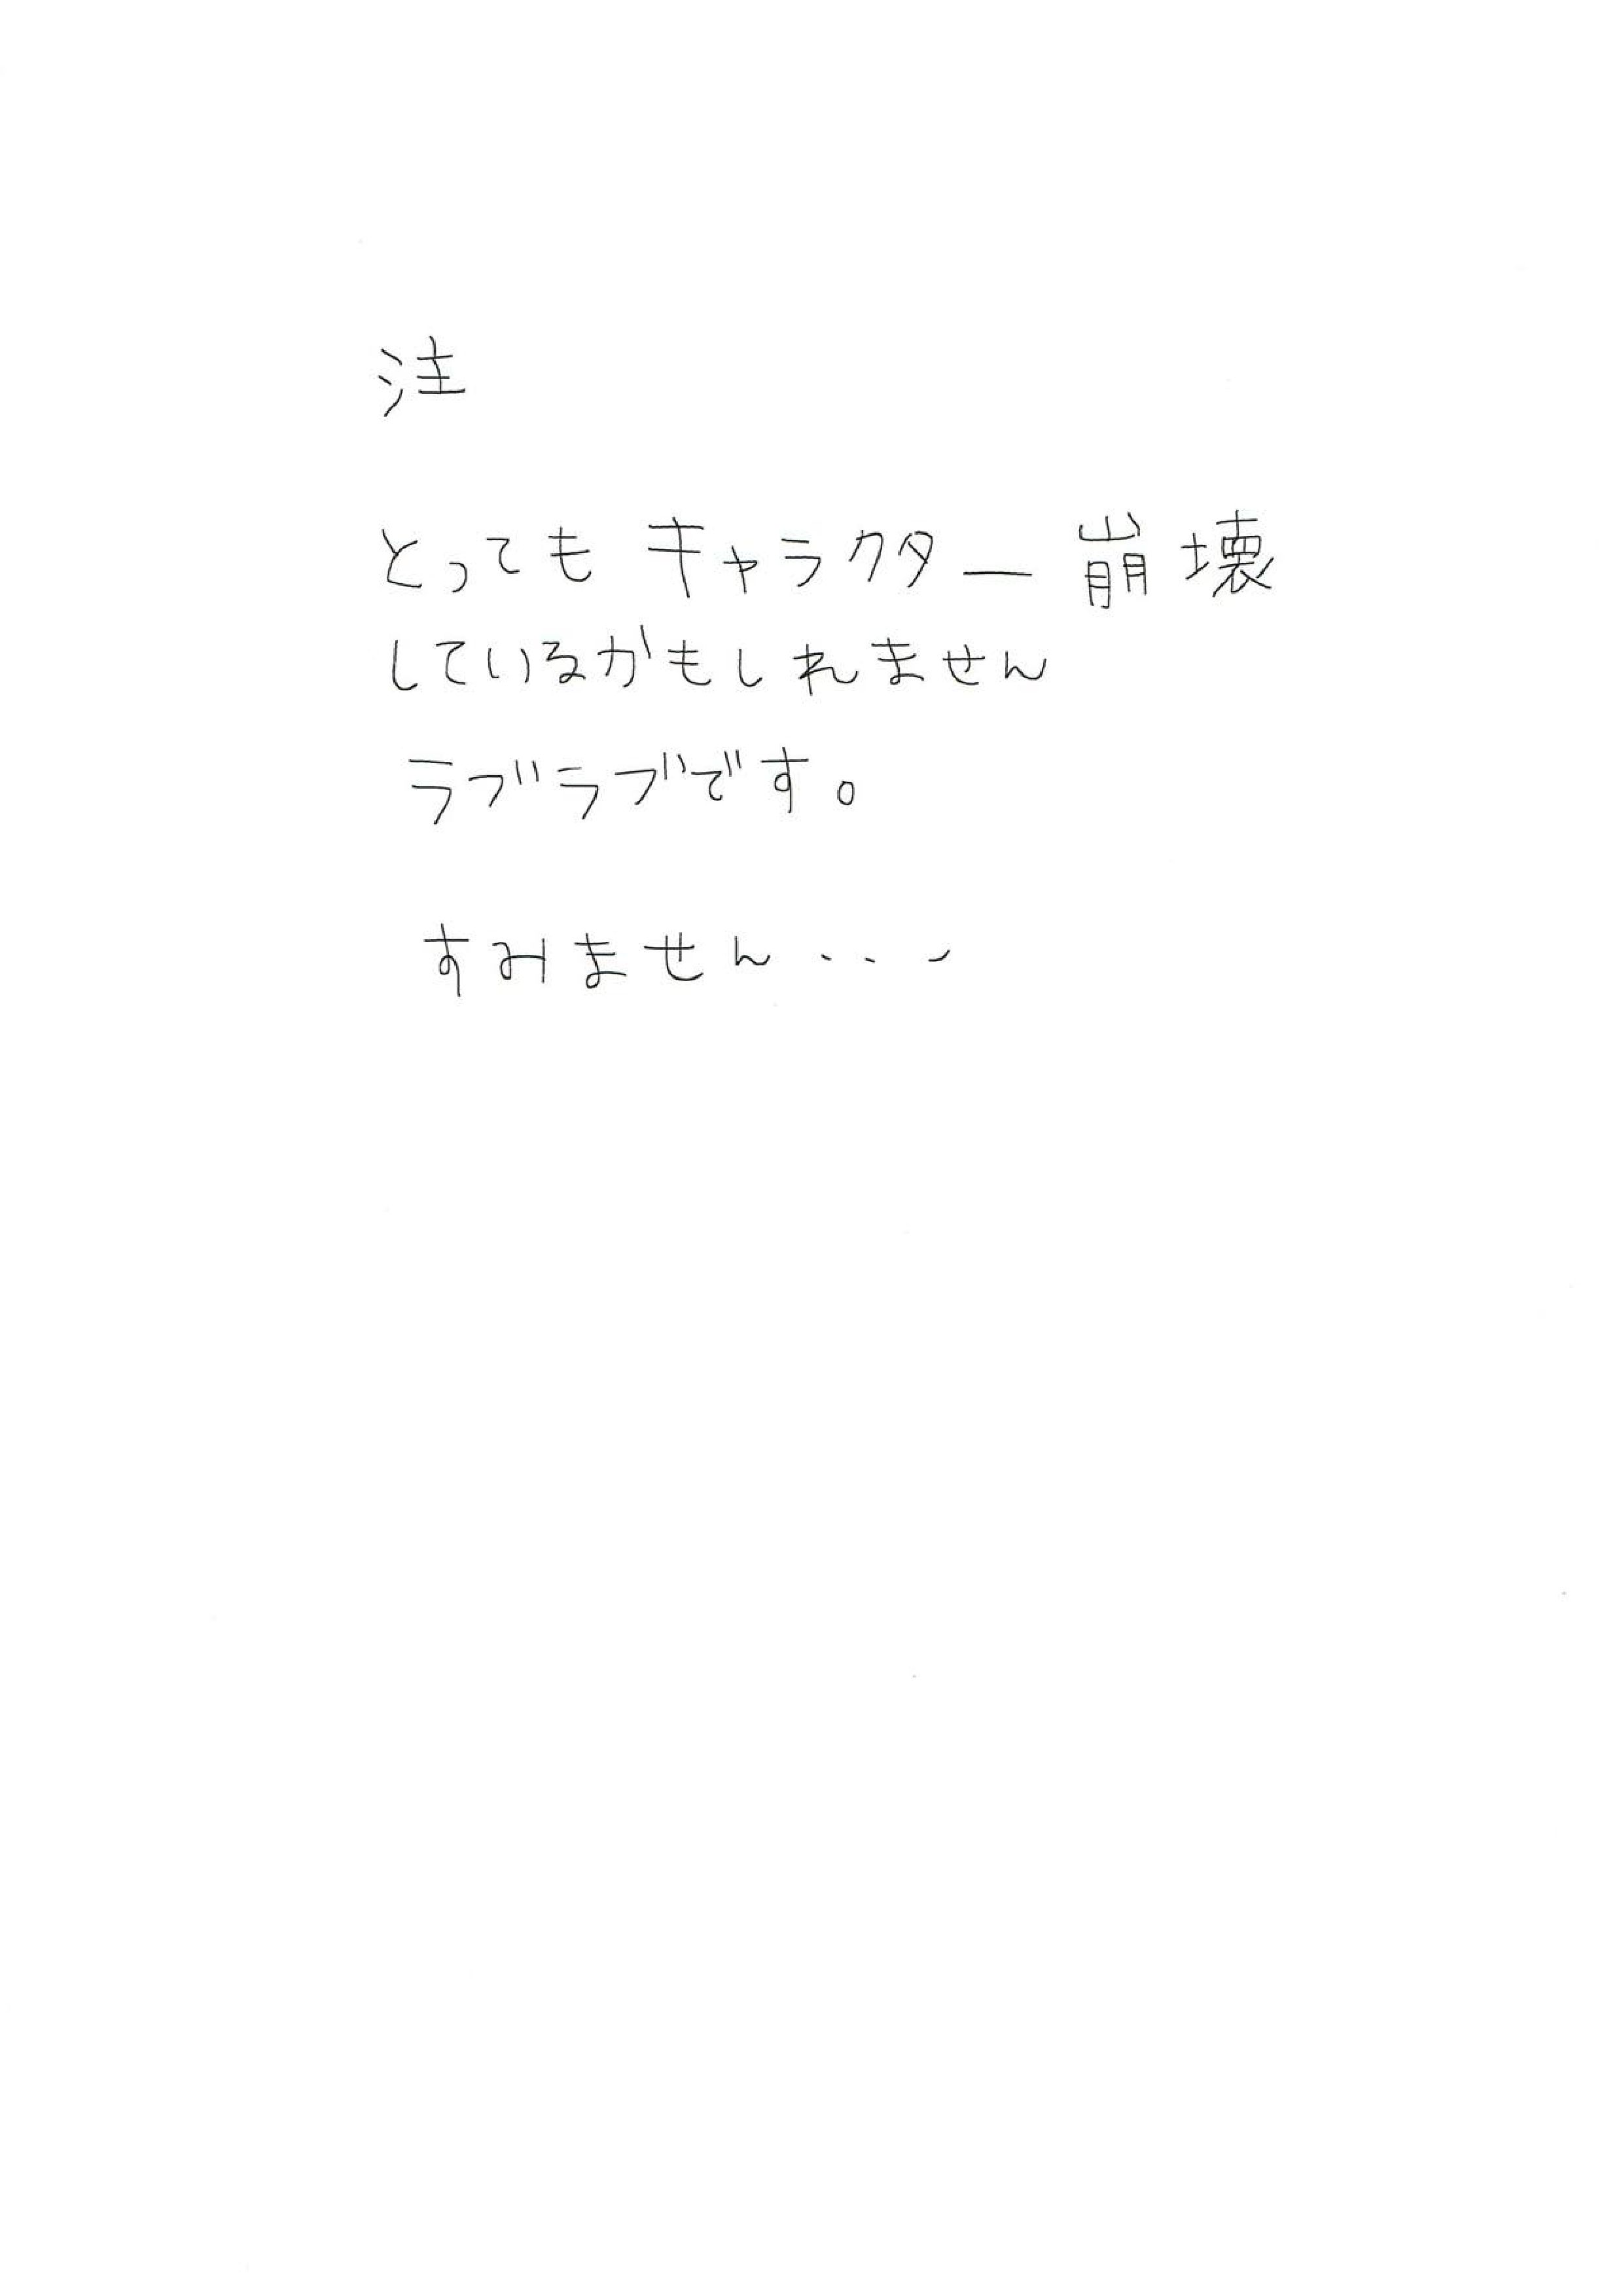 注
とっても キャラクター 崩壊
しているかもしれません
ラブラブです。
すみません...